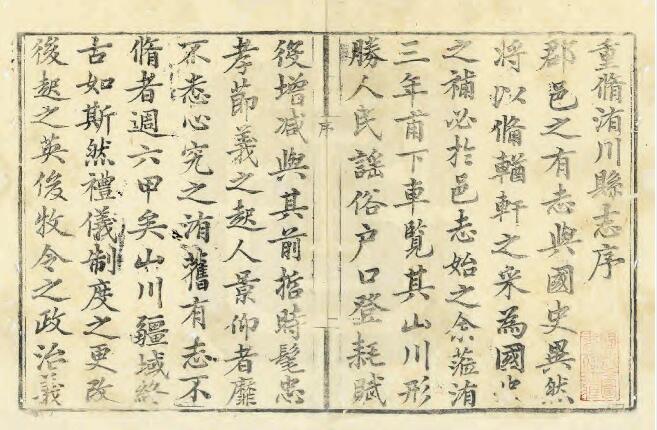 重脩洧川縣志序
郡邑之有志與國史異然
將以脩輶軒之采為國史
之補必於邑志始之余蒞洧
三年甫下車覽其山川形
勝人民謠俗户口登耗賦
序
役增减與其前哲時髦忠
孝節義之起人景仰者靡
不悉心究之洧舊有志不
脩者週六甲矣山川疆域終
古如斯然禮儀制度之更改
後起之英俊牧令之政治義